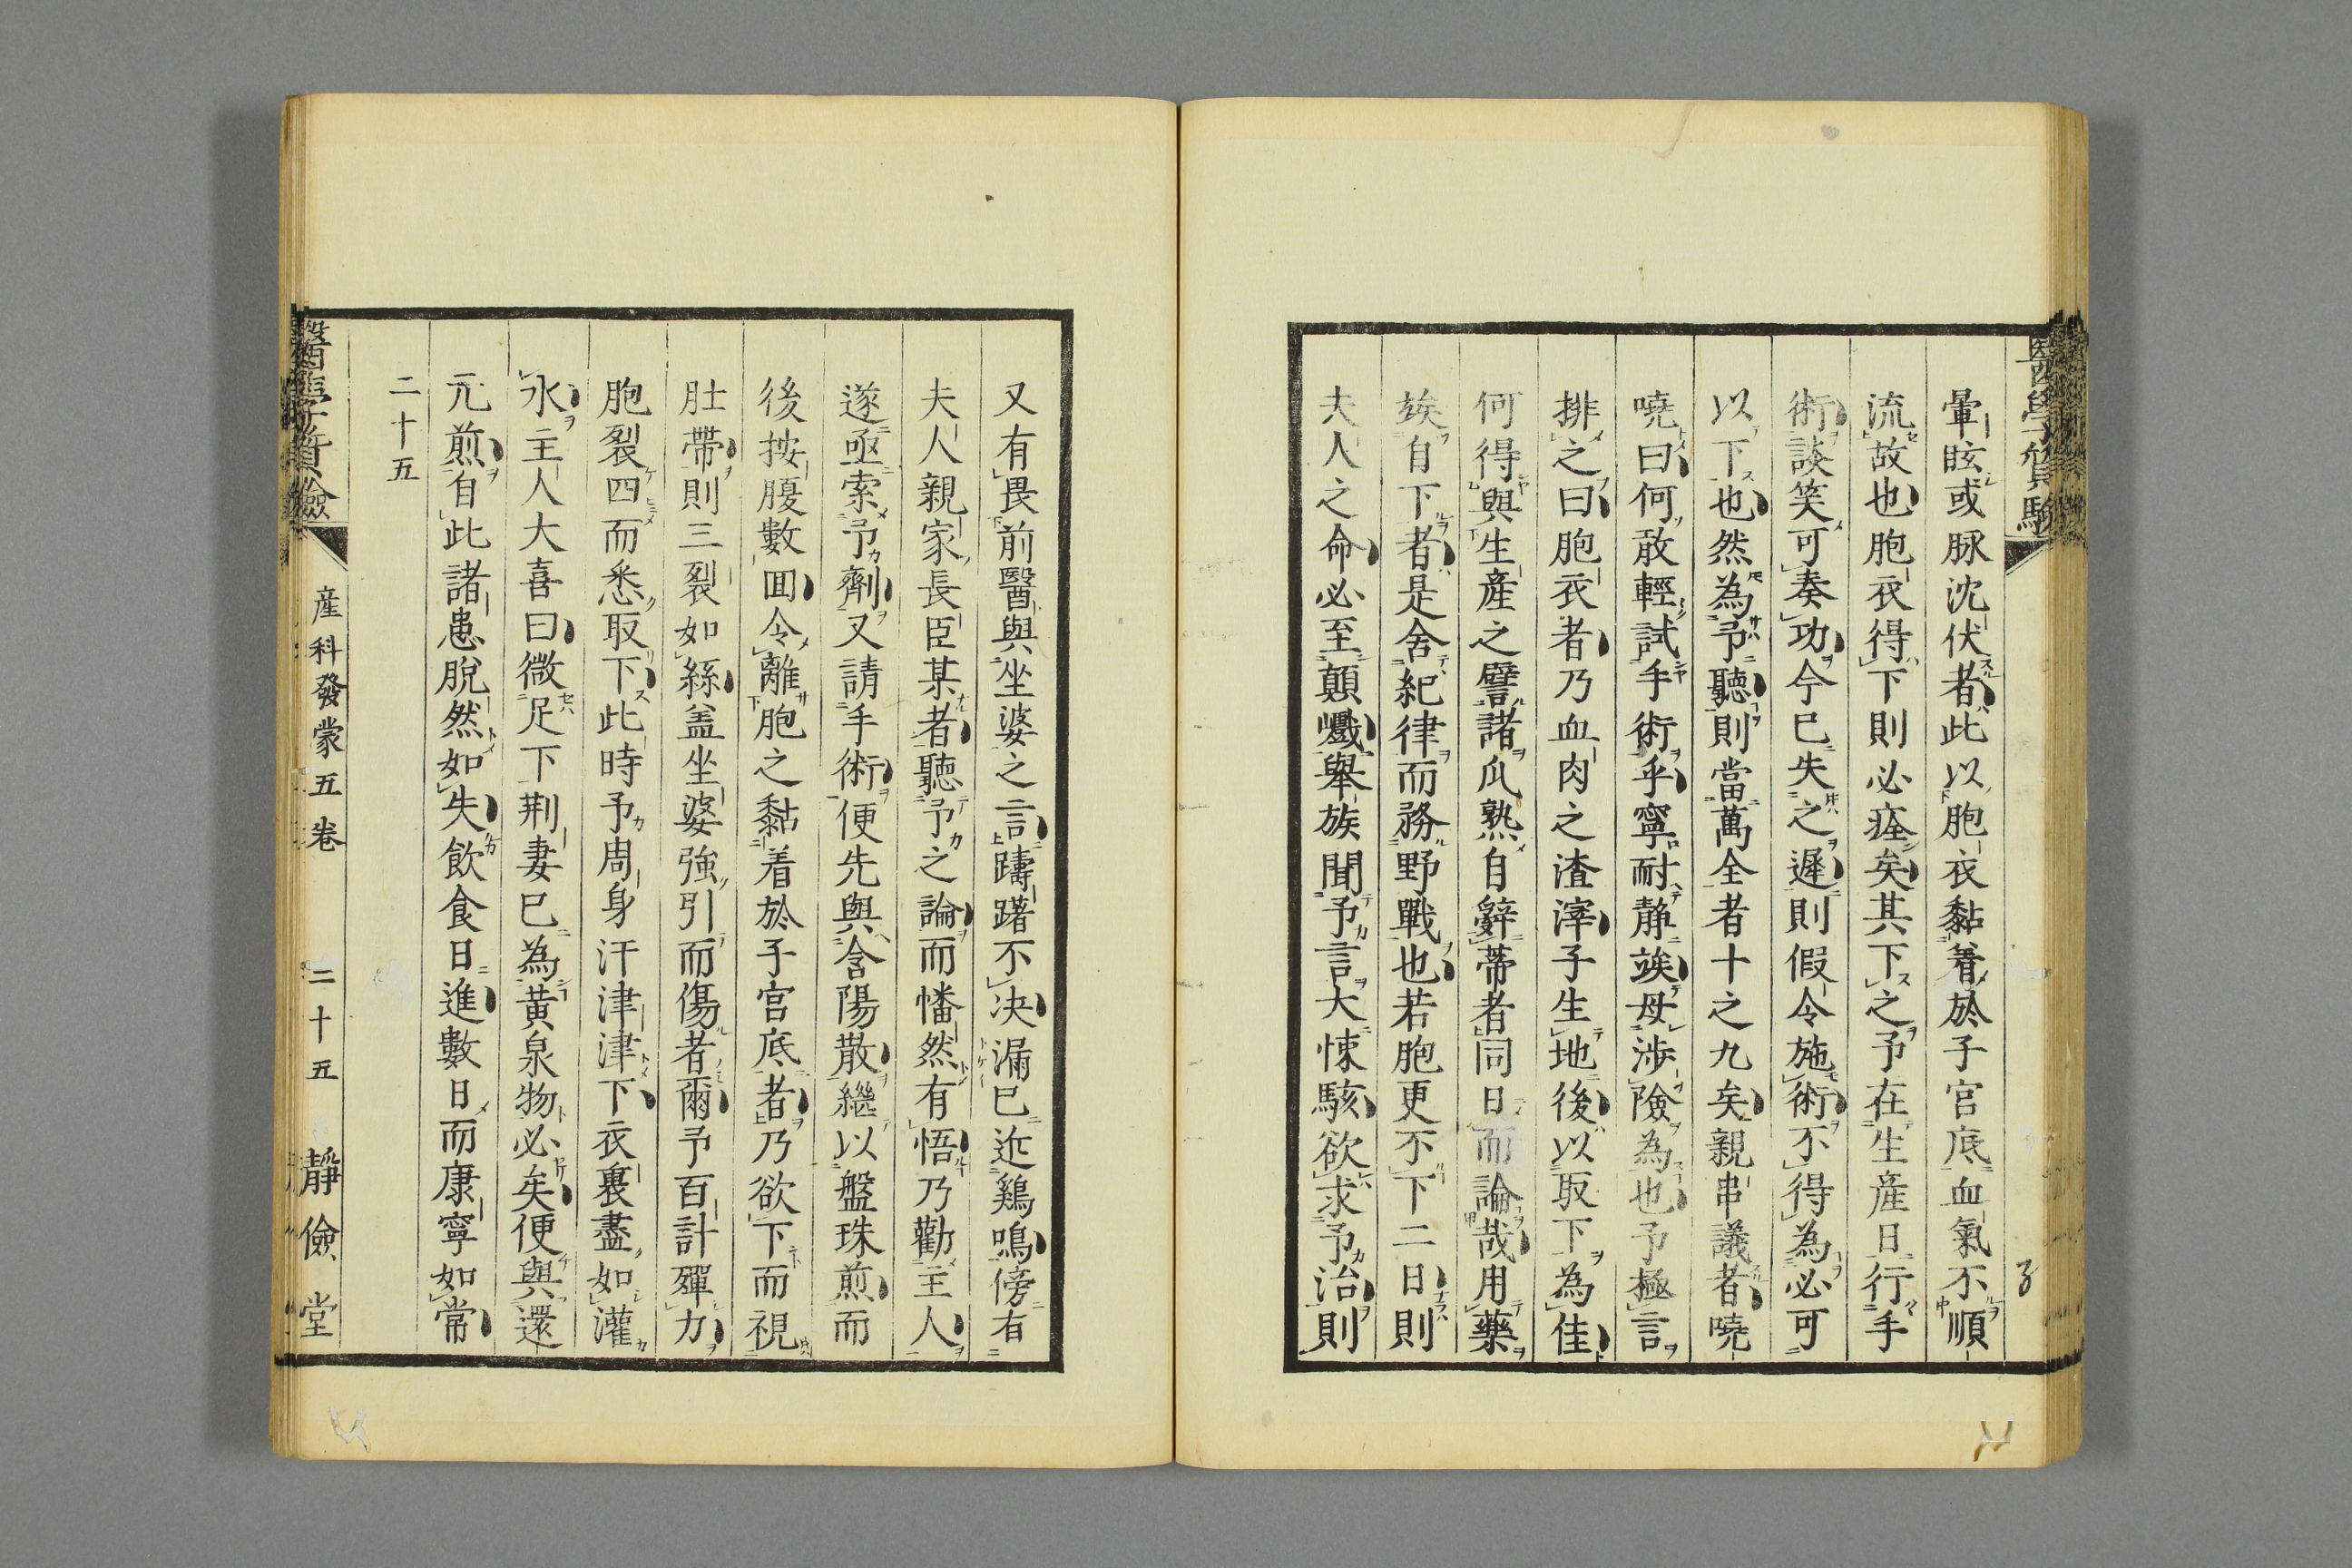 醫學質驗
暈眩或脉沈伏者此以胞衣黏着於子宮底血氣不順
流故也胞衣得下則必痊矣其下之予在生産日行手
術談笑可奏功今已失之遲則假令施術不得為必可
以下也然為予聽則當萬全者十之九矣親串議者曉
嘵曰何敢輕試手術乎寧耐靜竢母涉險為也予極言
排之曰胞衣者乃血肉之渣滓子生地後以取下為佳
何得與生産之譬諸瓜熟自辭蒂者同日而論哉用藥
竢自下者是舍紀律而務野戰也若胞更不下二日則
夫人之命必至顛𡾰舉族聞予言大悚駭欲求予治則
又有畏前醫與坐婆之言躊躇不决漏已近鷄鳴傍有
夫人親家長臣某者聽予之論而幡然有悟乃勸主人
遂亟索予劑又請手術便先與含陽散繼以盤珠煎而
後按腹數囬令離胞之黏着於子宮底者乃欲下而視
肚帶則三裂如絲盖坐婆強引而傷者爾予百計殫力
胞裂四而悉取下此時予周身汗津津下衣裏盡如灌
水主人大喜曰微足下荆妻已為黃泉物必矣便與還
元煎自此諸患脫然如失飲食日進數日而康寧如常
二十五
醫學質驗
産科發蒙五卷
二十五
靜儉堂